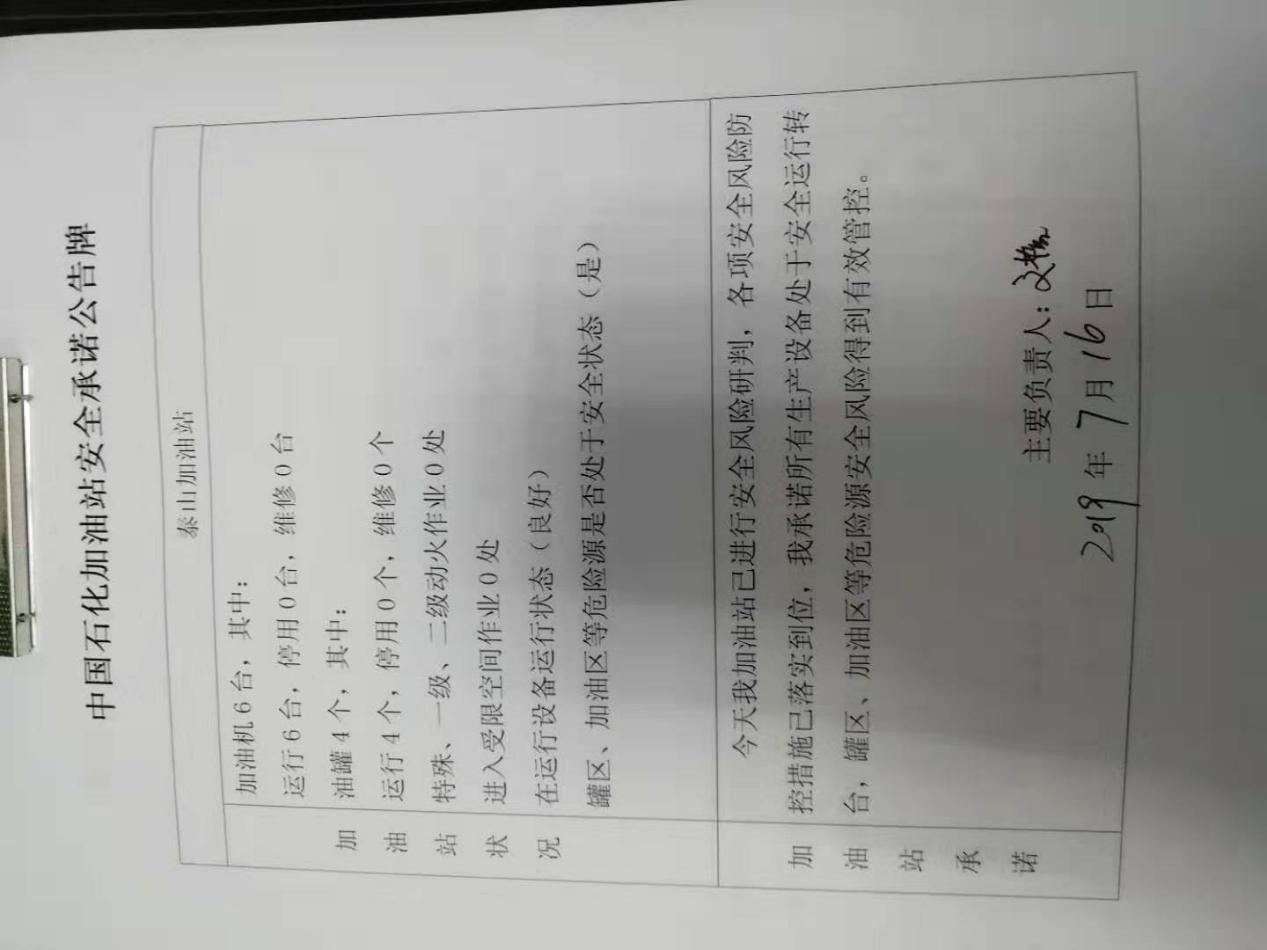 中国石化加油站安全承诺公告牌
泰山加油站
加油站状况
加油机6台，其中：
运行6台，停用0台，维修0台
油罐4个，其中：
运行4个，停用0个，维修0个
特殊、一级、二级动火作业0处
进入受限空间作业0处
在运行设备运行状态（良好）
罐区、加油区等危险源是否处于安全状态（是）
加油站承诺
今天我加油站已进行安全风险研判，各项安全风险防
控措施已落实到位，我承诺所有生产设备处于安全运行转
台，罐区、加油区等危险源安全风险得到有效管控。
主要负责人：
2019年7月16日